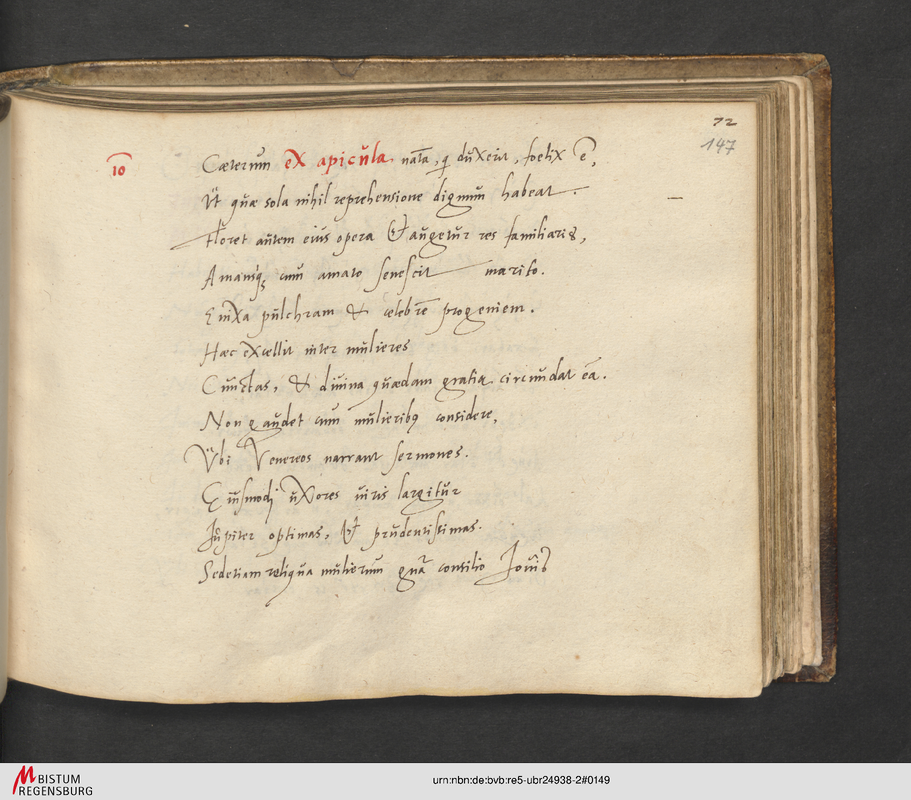 72
147
10 Cæterum ex apicula nāta, q̨ duxerit, foelix ē,
Ut quæ sola nihil reprehensione dignum habeat.
Floret autem eius opera & augetur res familiaris,
Amansq̨ cum amato senescit marito.
Enixa pulchram & celebrē progeniem.
Hæc excellit inter mulieres
Cunctas, & diuina quædam gratia circundat eā.
Non gaudet cum mulierib9 considere,
Ubi Venereos narrant sermones.
Eiusmodj uxores uiris largitur
Jupiter optimas, & prudentissimas.
Sed etiam reliqua mulierum consilio Jouis
BISTUM
REGENSBURG
urn:nbn:de:bvb:re5-ubr24938-2#0149